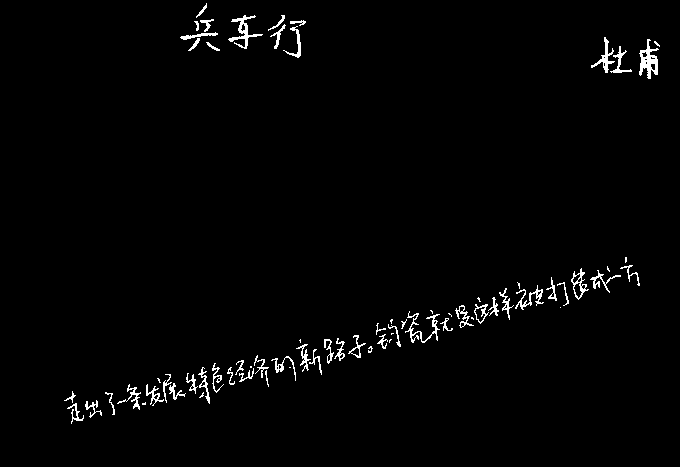 兵车行
杜甫
走出了一条发展特色经济的新路子。钧瓷就是这样被打造成一方